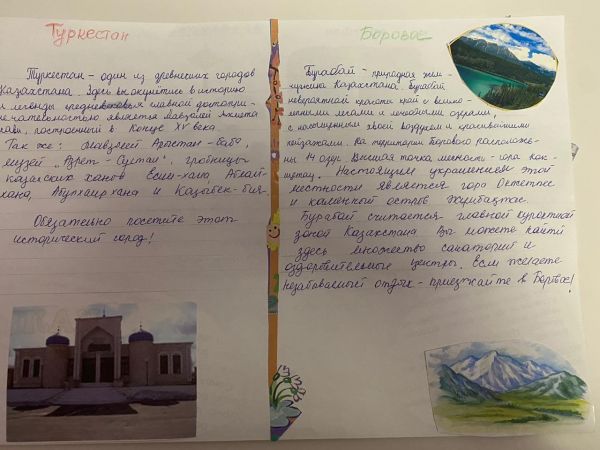 Туркестан
Туркестан - один из древнейших городов
Казахстана. Здесь вы окунётесь в историю
и легенды средневековья главной достопри-
мечательностью является Мавзолей Яхмета
построенный в Конце XV века.
Так же: Мавзолей Арыстан-баба,
музей "Азрет-Султан", гробницы
казахских ханов Есим-хана, Абылай
хана, Абулхаирхана и Казыбек-бия.
Обязательно посетите этот
исторический город!
Боровое
Бурабай - природная жем-
чужина Казахстана. Бурабай
невероятной красоты край с велико-
лепными лесами и лечебными озёрами,
с насыщенным хвоей воздухом и красивейшими
пейзажами. На территории Борового расположе-
ны 14 озёр. Высшая точка местности - гора Кок-
шетау. Настоящим украшением этой
местности является гора Октетпес
и каменной остров Жумбактас.
Бурабай считается главной курортной
зоной Казахстана Вы можете найти
здесь множество санаторий и
оздоровительные центры. Если желаете
незабываемый отдых - приезжайте в Боровое!